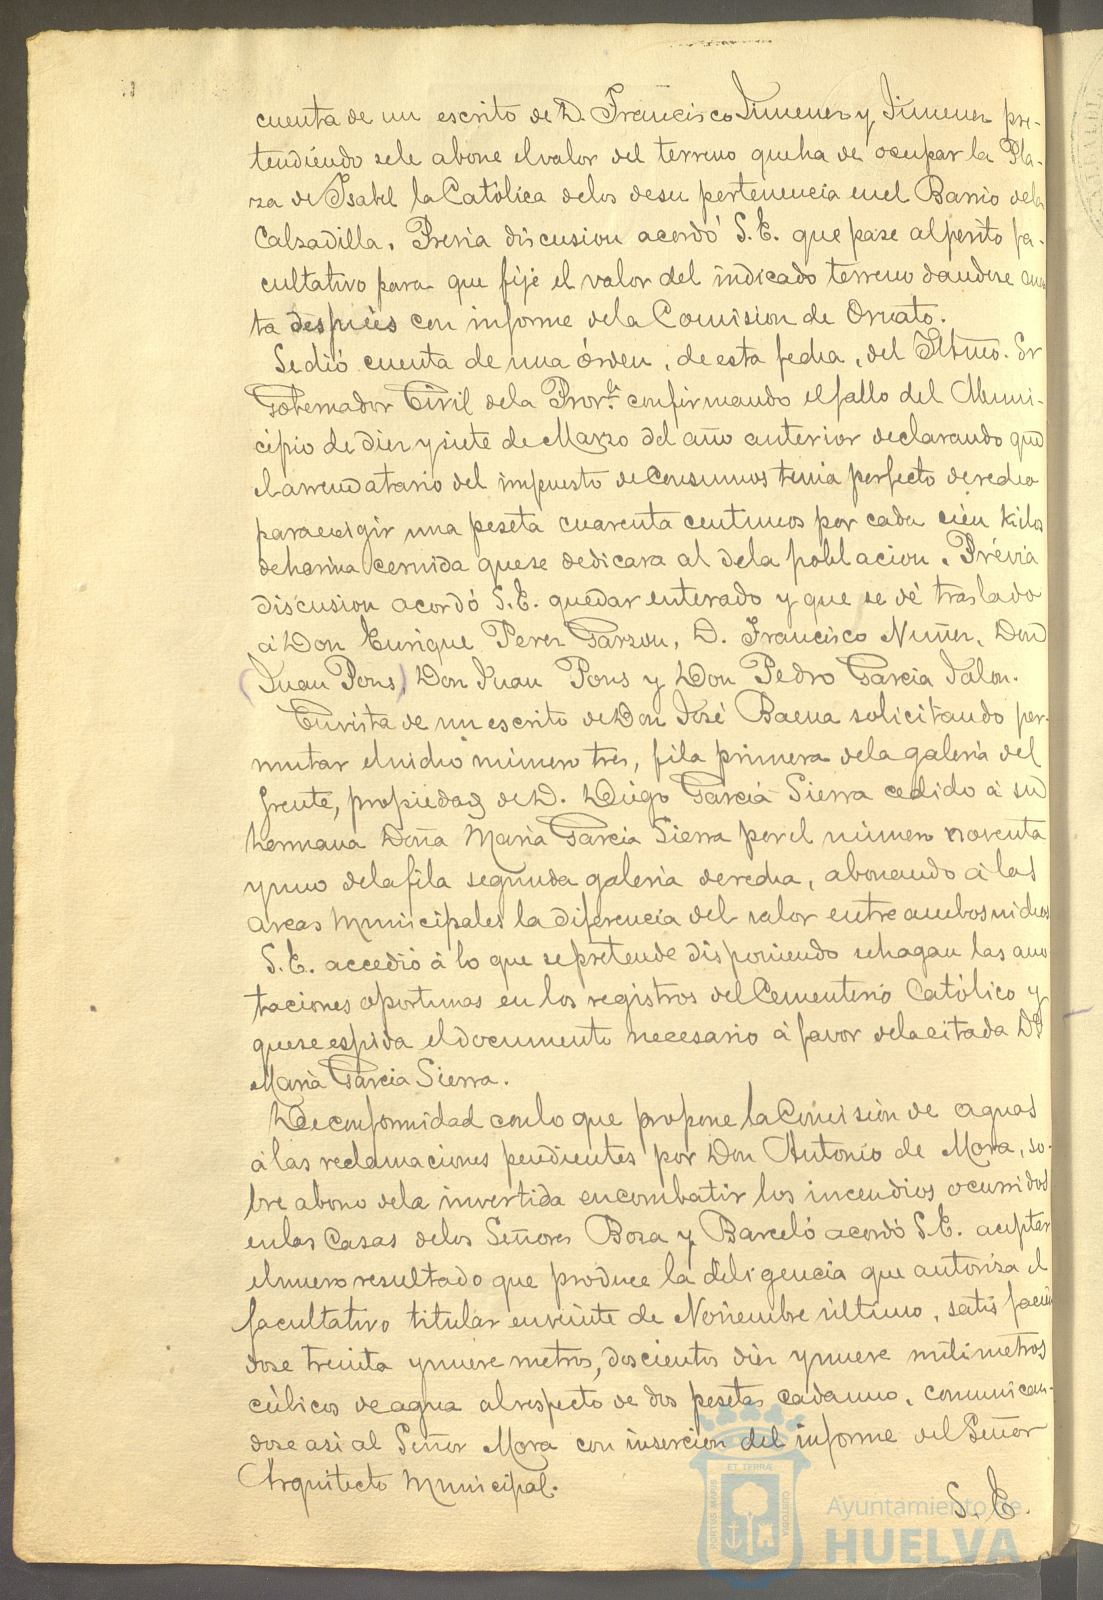 cuenta de un escrito de D. Francisco Jimenez y Jimenez pre-
tendiendo sele abone el valor del terreno que ha de ocupar la Pla-
za de Isabel la Católica delos desu pertenencia en el Barrio dela
Calzadilla. Previa discusion acordó S. E. que pase al perito fa-
cultativo para que fije el valor del indicado terreno dandose cuen
ta después con informe dela Comision de Ornato.
Se dió cuenta de una órden, de esta fecha, del Iltmo. Sr
Gobernador Civil dela Prov.ª confirmando el fallo del Muni-
cipio de diez y siete de Marzo del año anterior declarando que
el arrendatario del impuesto de Consumos tenia perfecto derecho
para exigir una peseta cuarenta centimos por cada cien kilos
de harina cernida que se dedicara al dela poblacion. Prévia
discusion acordó S. E. quedar enterado y que se dé traslado
á Don Enrique Perez Garzon, D. Francisco Nuñez, Don
(Juan Pons) Don Juan Pons y Don Pedro Garcia Jalon.
En vista de un escrito de Don José Baena solicitando per-
mutar el nicho número tres, fila primera dela galeria del
frente, propiedad de D. Diego Garcia Sierra cedido á su
hermana Doña Maria Garcia Sierra por el número noventa
y uno dela fila segunda galeria derecha, abonando á las
arcas Municipales la diferencia del valor entre ambos nichos
S. E. accedió á lo que se pretende disponiendo se hagan las ano
taciones oportunas en los registros del Cementerio Católico y
que se espida el documento necesario á favor dela citada Dª
Maria Garcia Sierra.
De conformidad con lo que propone la Comision de aguas
á las reclamaciones pendientes por Don Antonio de Mora, so-
bre abono dela invertida en combatir los incendios ocurridos
en las Casas delos Señores Boza y Barceló acordó S. E. aceptar
el nuevo resultado que produce la diligencia que autoriza el
facultativo titular en veinte de Noviembre último, satisfacien
dose treinta y nueve metros, doscientos diez y nueve milimetros
cúbicos de agua al respecto de dos pesetas cada uno, comunican-
dose asi al Señor Mora con insercion del informe del Señor
Arquitecto Municipal.
S. E.
PORTUS MARIS
ET TERRÆ
CUSTODIA
Ayuntamiento de
HUELVA